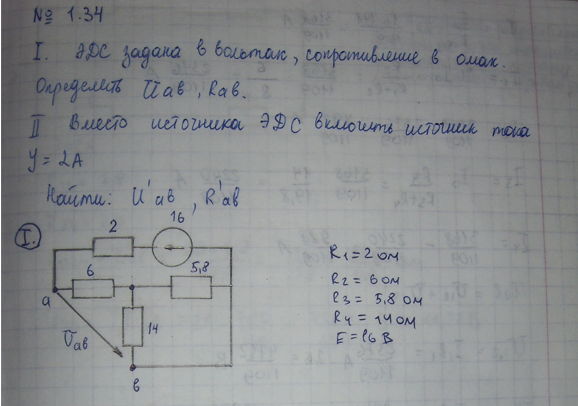 № 1.34
I. ЭДС задана в вольтах, сопротивление в омах.
Определить Uав, Rав.
II Вместо источника ЭДС включить источник тока
У = 2А
Найти: U'ав, R'ав
I.
2
16
6
5,8
а
14
Uав
в
R1 = 2 ом
R2 = 6 ом
R3 = 5,8 ом
R4 = 14 ом
E = 16 В